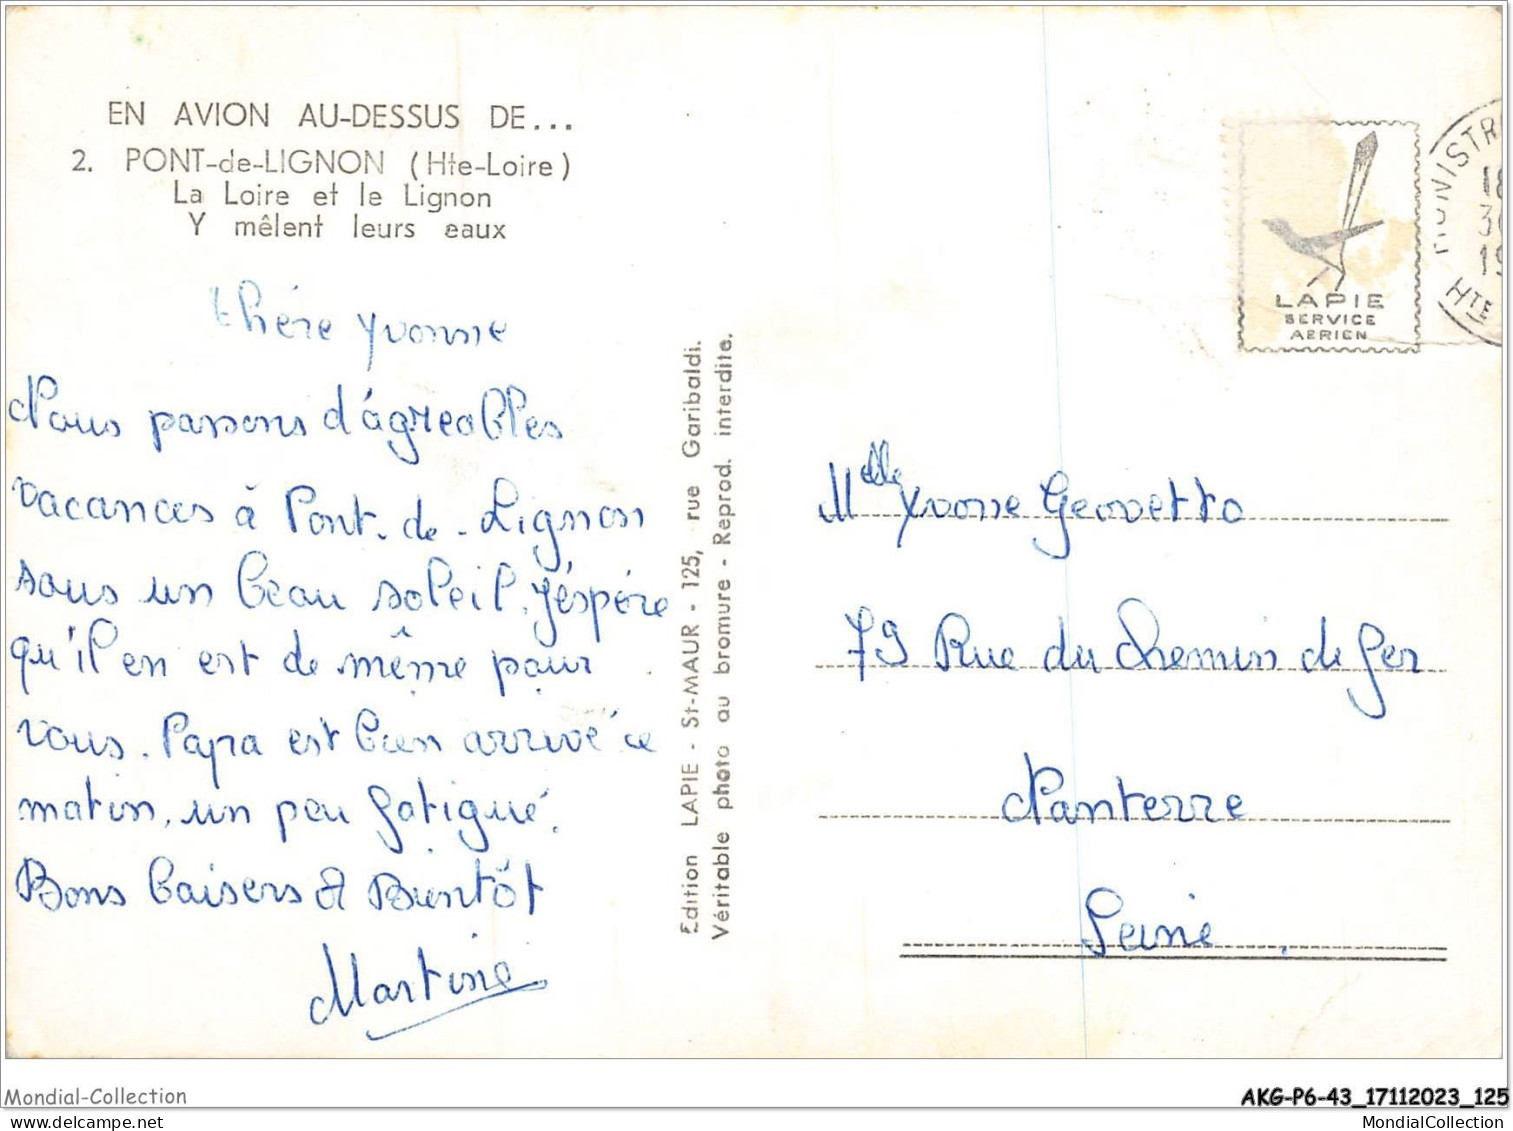 EN AVION AU-DESSUS DE...
2. PONT-de-LIGNON (Hte-Loire)
La Loire et le Lignon
Y mêlent leurs eaux
Chère Yvonne
Nous passons d'agréables
vacances à Pont-de-Lignon
sous un beau soleil. J'éspére
qu'il en est de même pour
vous. Papa est bien arrivé ce
matin, un peu fatigué.
Bons baisers et Bientôt
Martine
Edition LAPIE - St-MAUR - 125, rue Garibaldi.
Véritable photo au bromure - Reprod. interdite.
LAPIE
SERVICE
AERIEN
MONISTR
18
30
19
HTE
Melle Yvonne Geovetto
79 Rue du Chemin de fer
Nanterre
Seine.
Mondial-Collection
AKG-P6-43_17112023_125
MondialCollection